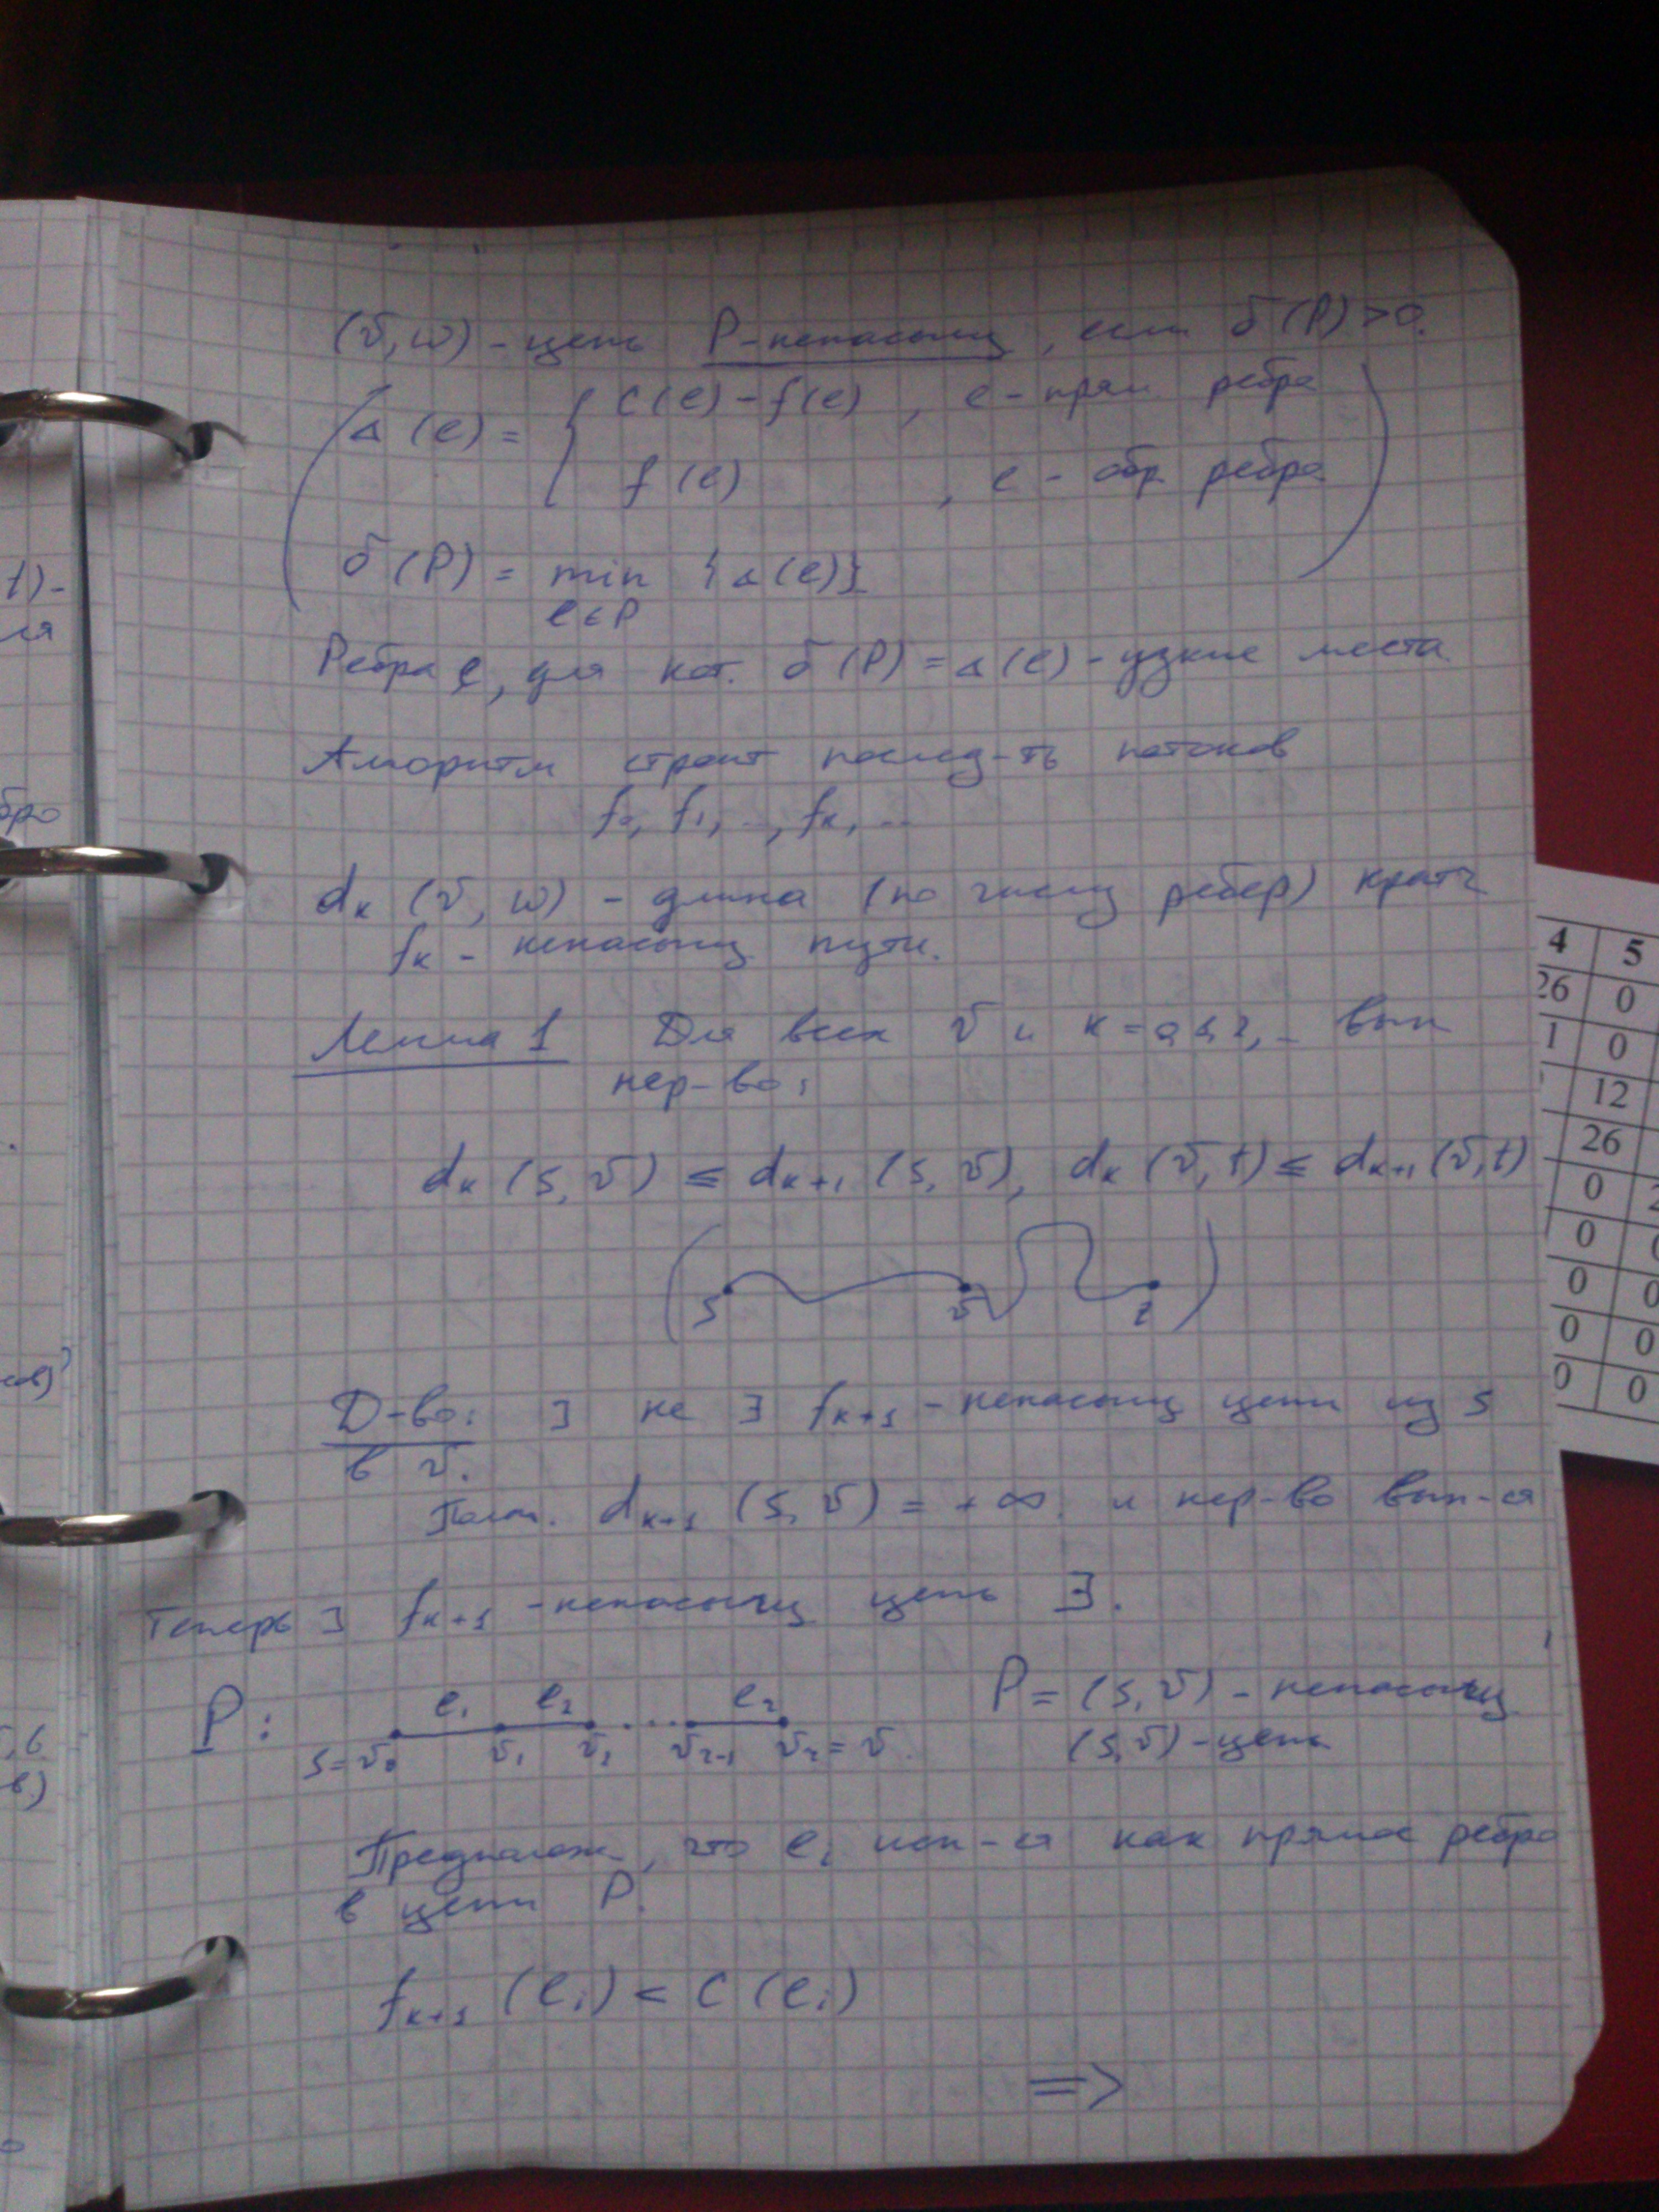 t)-
ся
бро
(v, w) - цепь P-ненасыщ, если δ(P) > 0.
Δ(e) = { c(e) - f(e), e - прям ребро
f(e), e - обр. ребро
δ(P) = min {Δ(e)}
e∈P
Ребра e, для кот. δ(P) = Δ(e) - узкие места.
Алгоритм строит послед-ть потоков
f₀, f₁, ..., fₖ, ...
dₖ(v, w) - длина (по числу ребер) кратч
fₖ - ненасыщ пути.
Лемма 1 Для всех v и k = 0, 1, 2, .. вып
нер-во:
dₖ(s, v) ≤ dₖ₊₁(s, v), dₖ(v, t) ≤ dₖ₊₁(v, t)
( s v t )
Д-во: ] не ∃ fₖ₊₁ - ненасыщ цепи из s
в v.
Полаг. dₖ₊₁(s, v) = +∞ и нер-во вып-ся
Теперь ] fₖ₊₁ - ненасыщ цепь ∃.
P: e₁ e₂ ... e_r P = (s, v) - ненасыщ
s = v₀ v₁ v₂ v_{r-1} v_r = v. (s, v) - цепь
Предполож, что eᵢ исп-ся как прямое ребро
в цепи P.
fₖ₊₁(eᵢ) < c(eᵢ)
=>
4 5
26 0
1 0
12
26
0 2
0
0 0
0 0
0 0